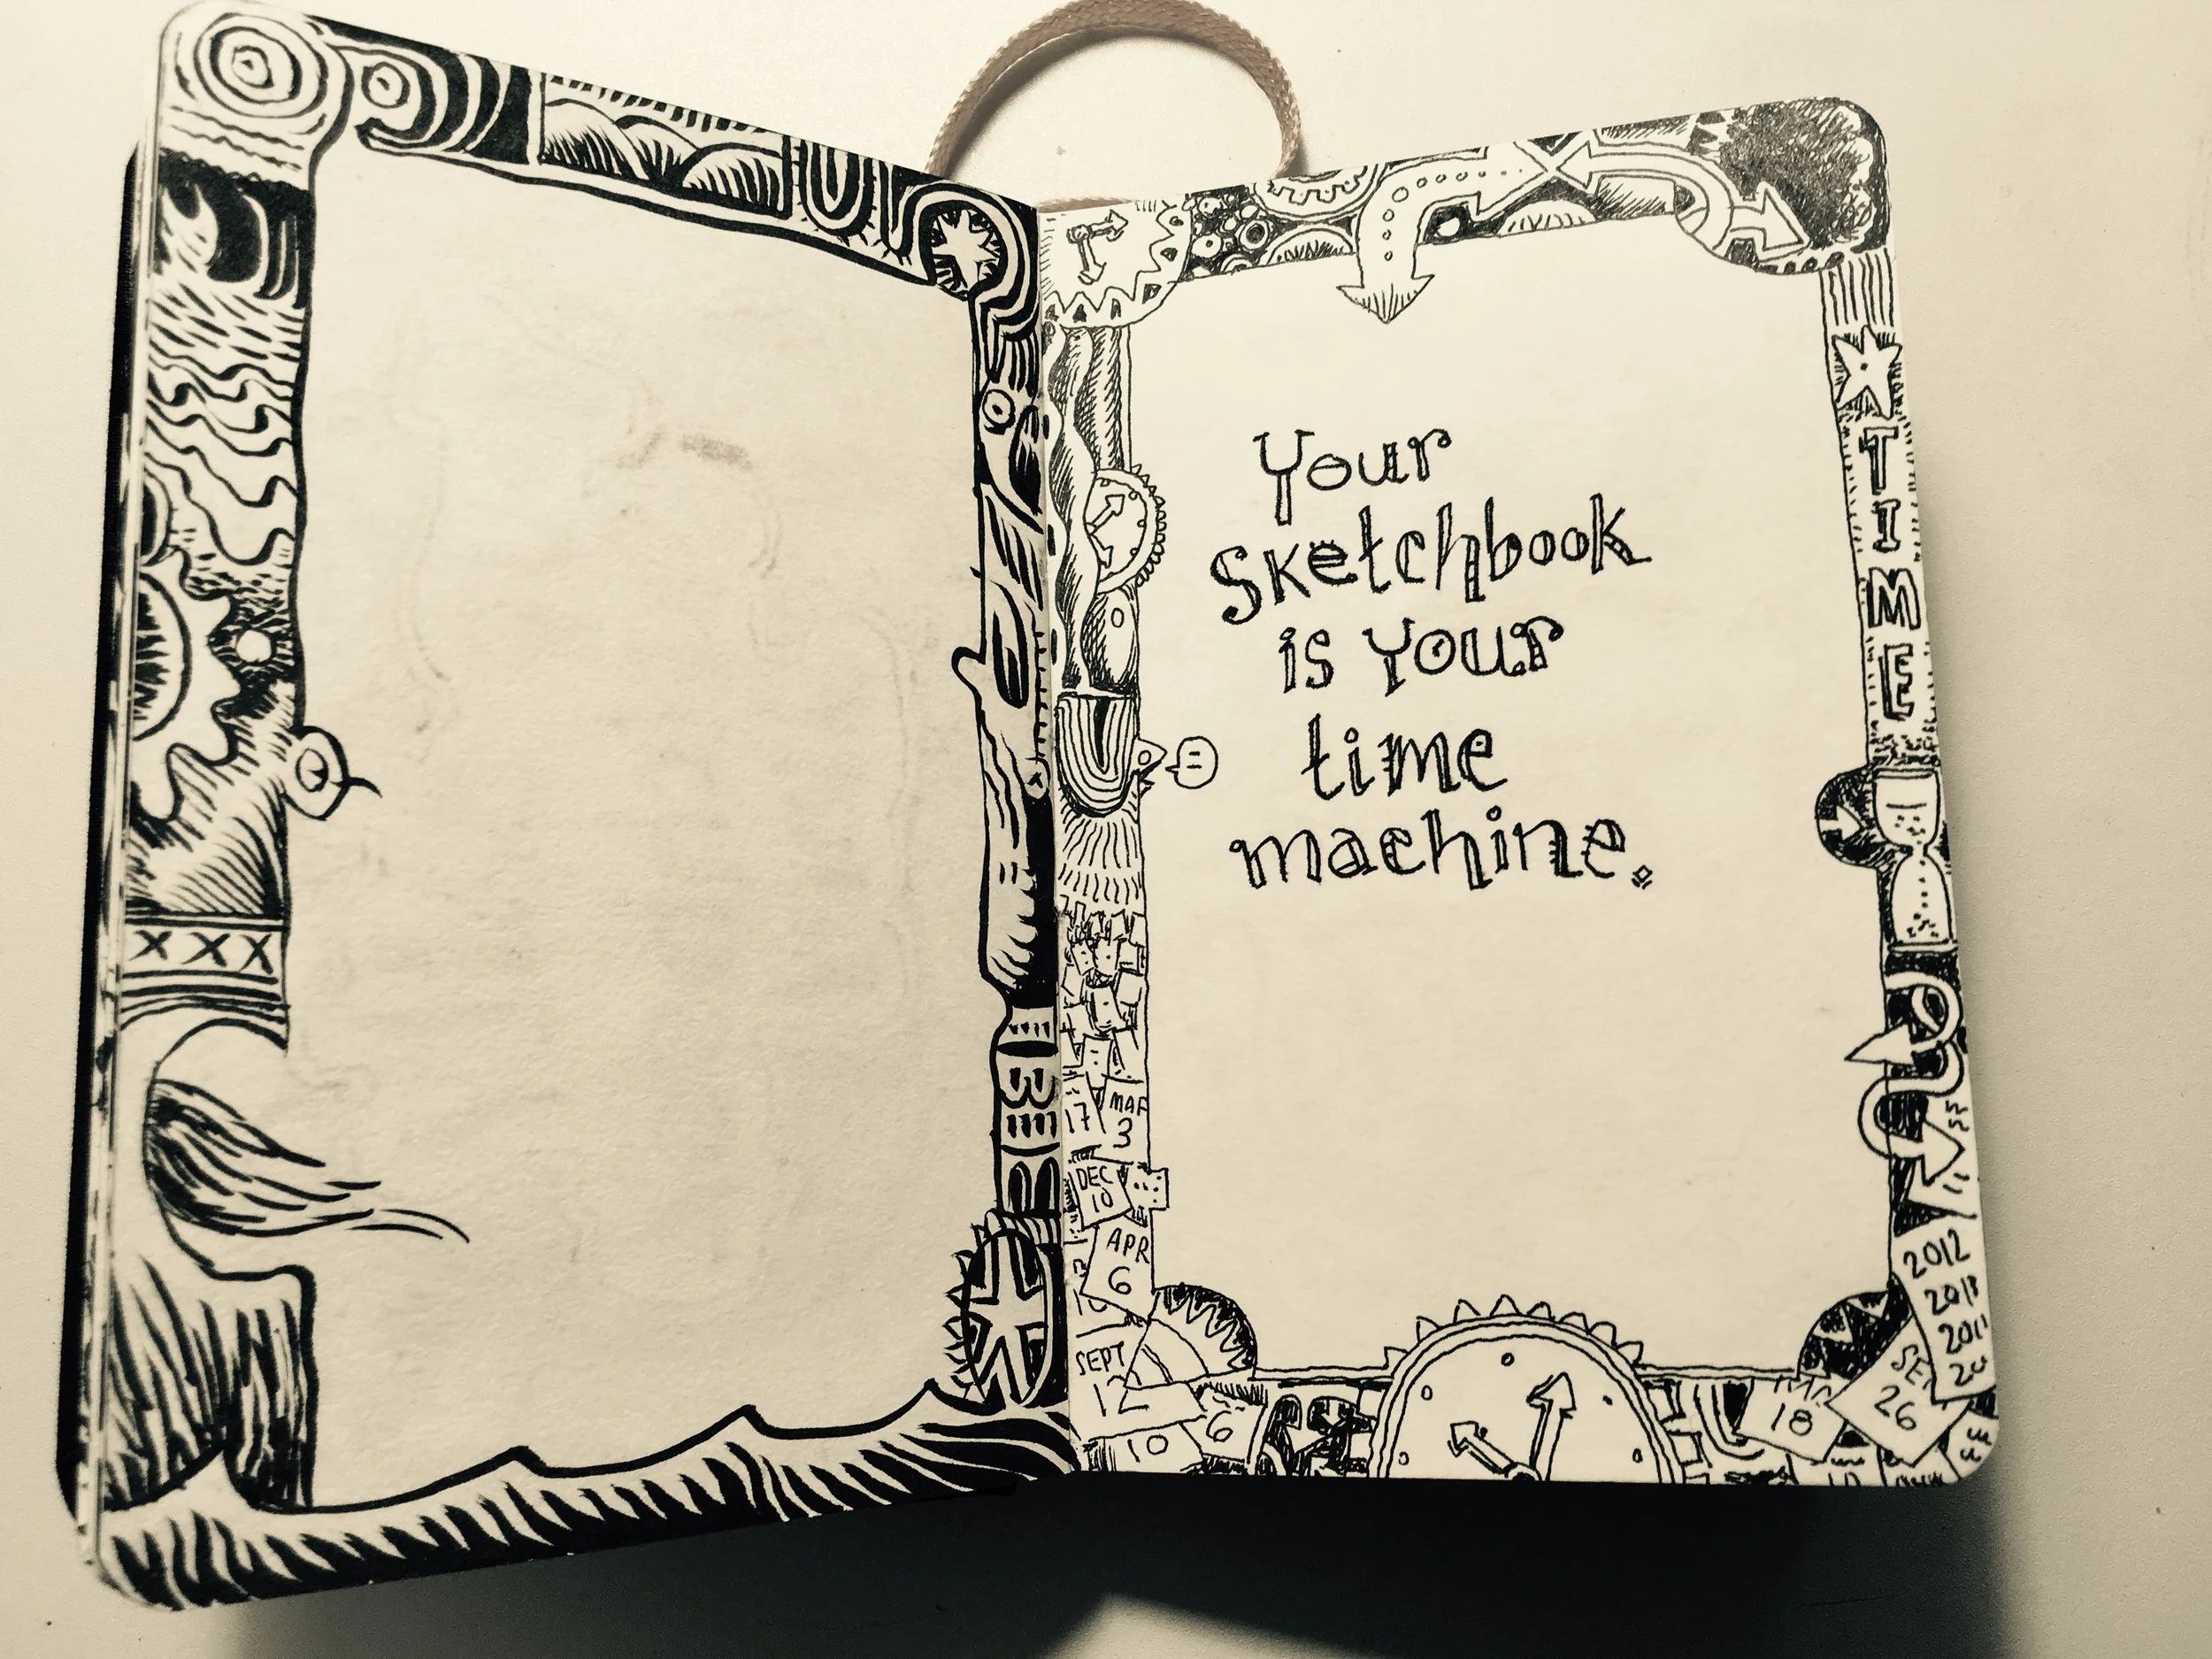 Your
Sketchbook
is Your
time
machine.
TIME
XXX
17
MAR
3
DEC
10
APR
6
SEPT
12
6
10
18
26
2012
2011